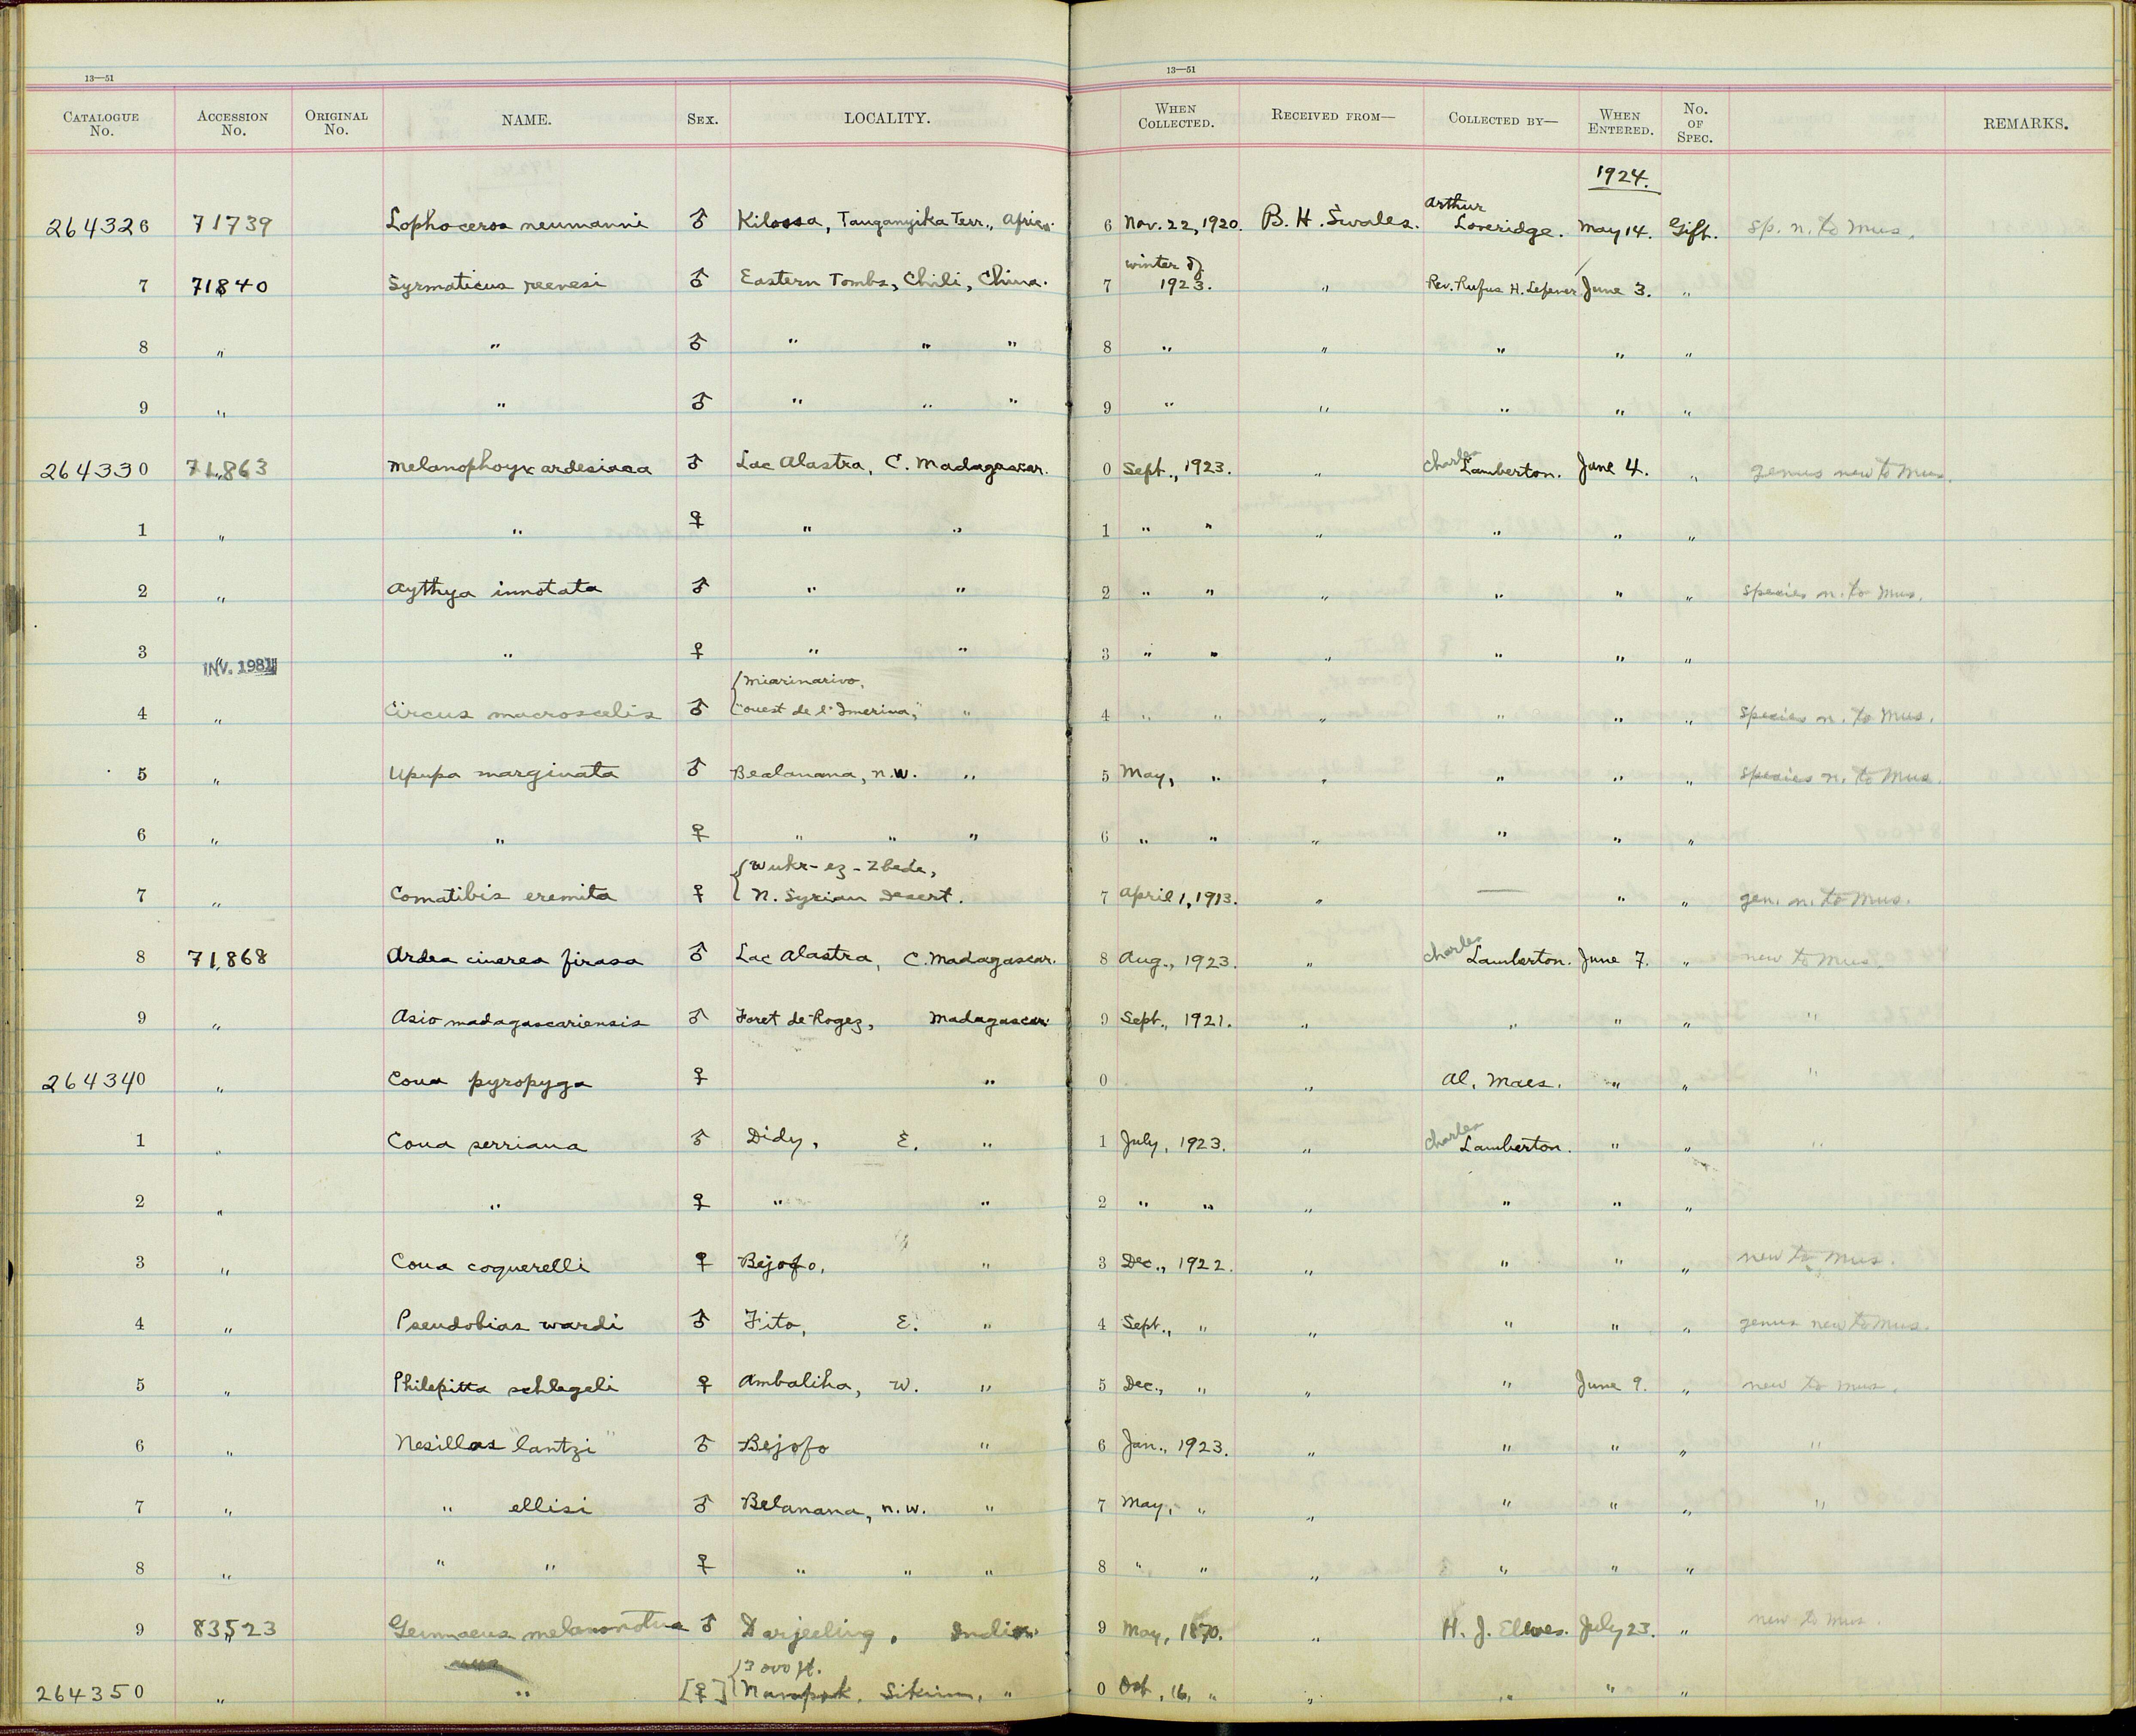 13—51 13—51
CATALOGUE No. ACCESSION No. ORIGINAL No. NAME. SEX. LOCALITY. WHEN COLLECTED. RECEIVED FROM— COLLECTED BY— WHEN ENTERED. No. OF SPEC. REMARKS.
1924.
264326 71739 Lophoceros neumanni ♂ Kilossa, Tanganyika Terr., Africa. 6 Nov. 22, 1920. B. H. Swales. Arthur Loveridge. May 14. Gift. sp. n. to Mus.
7 71840 Syrmaticus reevesi ♂ Eastern Tombs, Chili, China. 7 winter of 1923. " Rev. Rufus H. Lefever June 3. "
8 " " ♂ " " " 8 " " " " "
9 " " ♂ " " " 9 " " " " "
264330 71,863 Melanophoyx ardesiaca ♂ Lac Alastra, C. Madagascar. 0 Sept., 1923. " Charles Lamberton. June 4. " genus new to Mus.
1 " " ♀ " " 1 " " " " " "
2 " Aythya innotata ♂ " " 2 " " " " " " species n. to Mus.
3 " " ♀ " " 3 " " " " " "
INV. 1981
4 " Circus macroscelis ♂ {Miarinarivo, "ouest de l'Imerina," " 4 " " " " " " species n. to Mus.
5 " Upupa marginata ♂ Bealanana, n.w. " 5 May, " " " " " species n. to Mus.
6 " " ♀ " " " 6 " " " " " "
7 " Comatibis eremita ♀ {Wukr-ez-Zbede, N. Syrian Desert. 7 April 1, 1913. " — " " gen. n. to Mus.
8 71,868 Ardea cinerea firasa ♂ Lac Alastra, C. Madagascar. 8 Aug., 1923. " Charles Lamberton. June 7. " new to Mus.
9 " Asio madagascariensis ♂ Foret de Rogez, Madagascar. 9 Sept., 1921. " " " " "
264340 " Coua pyropyga ♀ " 0 " Al. Maes. " " "
1 " Coua serriana ♂ Didy, E. " 1 July, 1923. " Charles Lamberton. " " "
2 " " ♀ " " 2 " " " " " "
3 " Coua coquerelli ♀ Bejofo, " 3 Dec., 1922. " " " " new to Mus.
4 " Pseudobias wardi ♂ Fito, E. " 4 Sept., " " " " " genus new to Mus.
5 " Philepitta schlegeli ♀ Ambaliha, W. " 5 Dec., " " " June 9. " new to Mus.
6 " Nesillas "lantzi" ♂ Bejofo " 6 Jan., 1923. " " " " "
7 " " ellisi ♂ Belanana, n.w. " 7 May, " " " " " "
8 " " " ♀ " " " 8 " " " " " "
9 83,523 Gennaeus melanonotus ♂ Darjeeling, India. 9 May, 1870. " H. J. Elwes. July 23. " new to Mus.
264350 " " [♀] {3000 ft. Sikim, " 0 Oct, 16, " " " " "